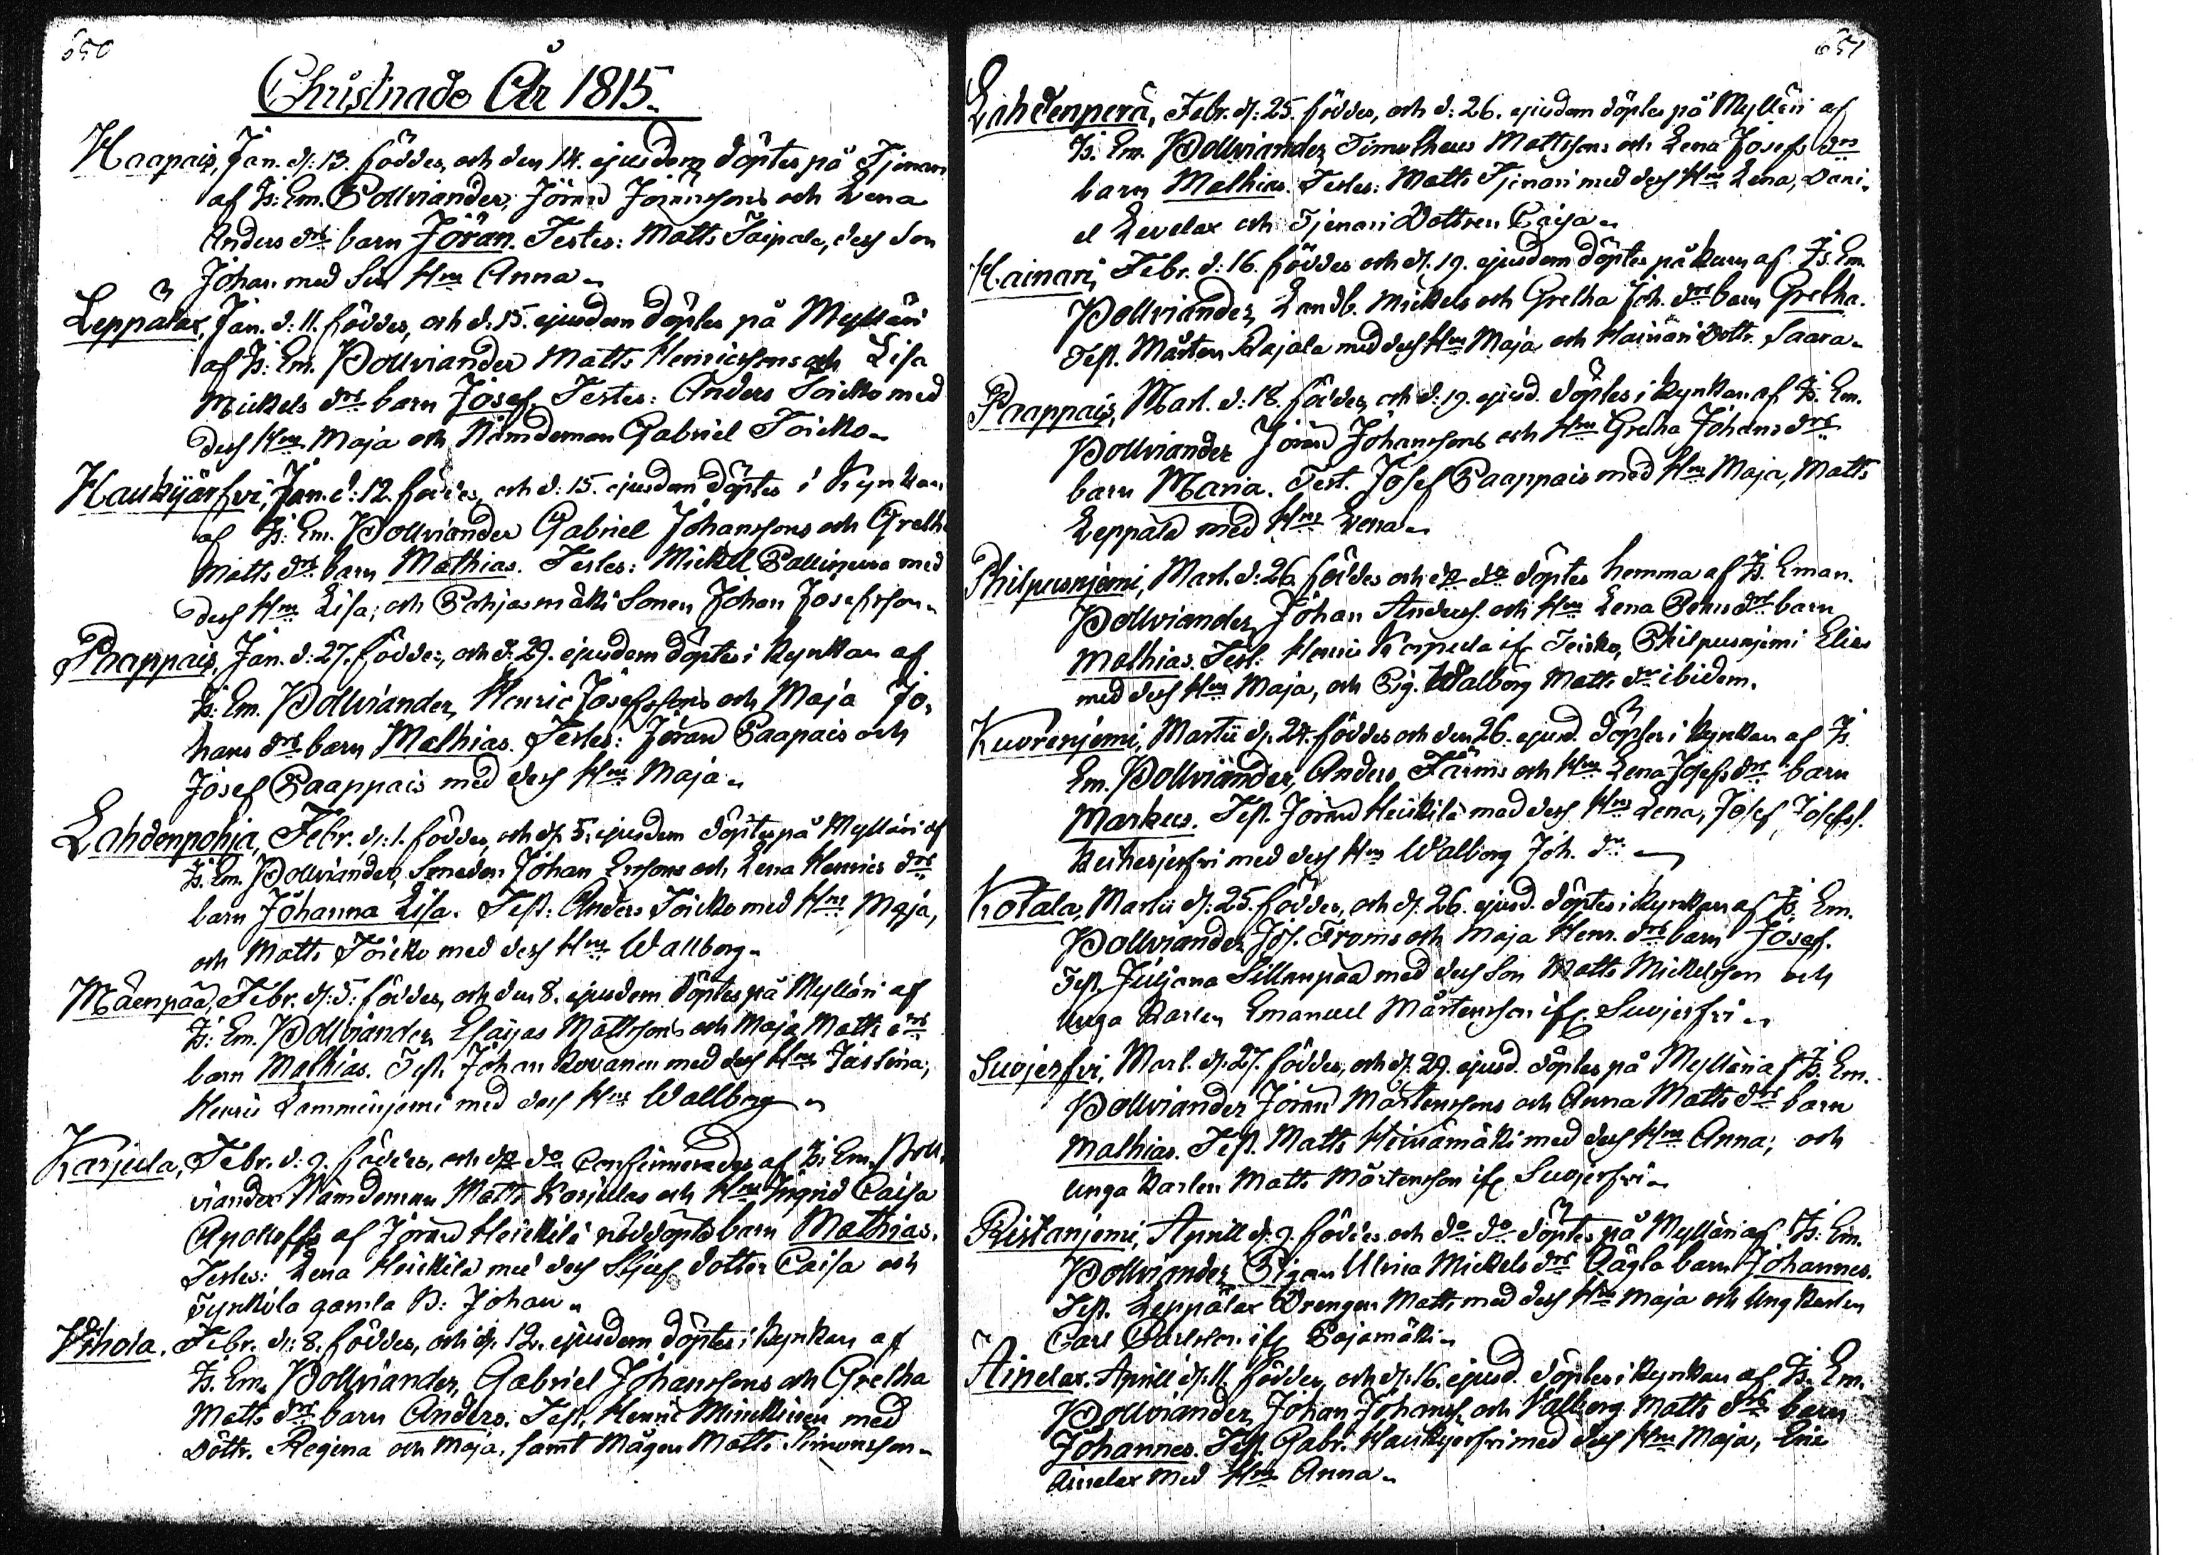 650
Christnade År 1815.
Haapais, Jan. d: 13. föddes, och den 14. ejusdem döptes på Tjenari
af Js: Em. Pollviander, Jöran Jöranssons och Lena
Anders drs barn Jöran. Testes: Matts Taipale, dess Son
Johan med sin Hru Anna.
Leppälax, Jan. d: 11. föddes, och d: 15. ejusdem döptes på Mylläri
af Js: Em. Pollviander Matts Henricssons och Lisa
Mickels drs barn Josef. Testes: Anders Toicko med
dess Hru Maja och Nämdeman Gabriel Toicko.
Haukijärfvi, Jan. d: 12. föddes, och d: 15. ejusdem döptes i Kyrkan
af Js: Em. Pollviander Gabriel Johanssons och Greth
Matts drs barn Mathias. Testes: Mickel med
dess Hru Lisa; och Pohjasmäki Sonen Johan Josefsson.
Paappais, Jan. d: 27. föddes, och d: 29. ejusdem döptes i Kyrkan af
Js: Em. Pollviander, Henric Josefssons och Maja Jo,
hans drs barn Mathias. Testes: Jöran Paapais och
Josef Paappais med dess Hru Maja.
Lahdenpohja, Febr. d: 1. föddes, och d: 5. ejusdem döptes på Mylläri af
Js: Em. Pollviander, Smeden Johan Erssons och Lena Henrics drs
barn Johanna Lisa. Test: Anders Toicko med Hru Maja,
och Matts Toicko med dess Hru Wallborg.
Mäenpää, Febr. d: 5. föddes, och den 8. ejusdem döptes på Mylläri af
Js: Em. Pollviander Esaijas Mattssons och Maja Matts drs
barn Mathias. Test. Johan Kovanen med dess Hru
Henric Lamminjemi med dess Hru Wallborg
Karjula, Febr. d: 9. föddes, och do do Confirmerades af Js: Em. Poll,
viander Nämdeman Matts Karjulas och Hru Ingrid Caisa
Apolloffs af Jöran Heickilä nöddöpta barn Mathias.
Testes: Lena Heickilä med dess Stjuf dotter Caisa och
Tynkilä gamla B: Johan.
Vihola. Febr. d: 8. föddes, och d: 12. ejusdem döptes i Kyrkan af
Js. Em. Pollviander, Gabriel Johanssons och Gretha
Matts drs barn Anders. Test. Henric Minckinen med
Döttr. Regina och Maja, samt Mågen Matts Simonsson.
651
Lahdenperä, Febr. d: 25. föddes, och d: 26. ejusdem döptes på Mylläri af
Js. Em. Pollviander Timotheus Mattssons och Lena Josefs drs
barn Mathias. Testes: Matts Tjenari med dess Hru Lena, Dani,
el Levelax och Tjenari Dottren Caisa.
Kainari, Febr. d: 16. föddes och d. 19. ejusdem döptes på Karu af Js. Em.
Pollviander, Landb. Mickels och Gretha Joh. drs barn Gretha.
Test. Mårten Rajala med dess Hru Maja och Kainäri Dottr. Saara.
Paappais, Mart. d: 18. föddes, och d: 19. ejusd. döptes i Kyrkan af Js. Em.
Pollviander Jöran Johanssons och Hru Gretha Johans drs
barn Maria. Test. Josef Paappais med Hru Maja, Matts
Leppälä med Hru Lena.
Philpusnjemi, Mart. d: 26. föddes och do do döptes hemma af Js. Eman.
Pollviander, Johan Anderss. och Hru Lena drs barn
Mathias. Test: Henric Karpula if. Toicko, Philpusnjemi Elias
med dess Hru Maja, och Pig. Walborg Matts dr ibidem.
Kuorenjemi, Martii d. 24. föddes och den 26. ejusd. döptes i Kyrkan af Js.
Em. Pollviander, Anders Färms och Hru Lena Josefs drs barn
Markus. Test. Jöran Heickilä med dess Hru Lena, Josef Josefss.
Keihesjerfvi med dess Hru Walborg Joh. dr
Kotala, Martii d: 25. föddes, och d. 26. ejusd. döptes i Kyrkan af Js. Em.
Pollviander Jos. Froms och Maja Henr. drs barn Josef.
Test. Juljana Sillanpää med dess Son Matts Mickelsson och
Unga Karlen Emanuel Mårtensson if. Suojerfvi.
Suojerfvi, Mart. d. 27. föddes, och d. 29. ejusd. döptes på Mylläri af Js. Em.
Pollviander Jöran Mårtenssons och Anna Matts drs barn
Mathias. Test. Matts Heinämäki med dess Hru Anna; och
Unga Karlen Matts Mårtensson if. Suojerfvi.
Ristanjemi, Aprill d. 9. föddes och do do döptes på Mylläri af Js: Em.
Pollviander, Pigan Ulrica Mickels drs Oägta barn Johannes.
Test. Leppälax Drengen Matts med dess Hru Maja och Ung Karlen
Carl Carlsson if. Pajamäki.
Ainelax. Aprill d. 11. föddes, och d. 16. ejusd. döptes i Kyrkan af Js. Em.
Pollviander, Johan Johanss. och Valborg Matts drs barn
Johannes. Test. Gabr. Haukijerfvi med dess Hru Maja, Eric
Ainelax med Hru Anna.